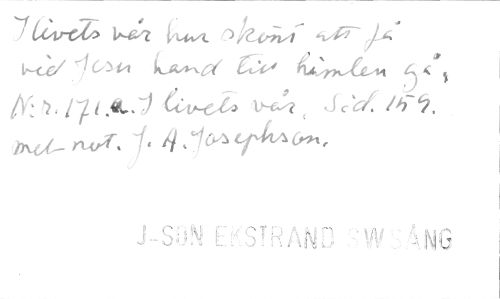 I livets vår hur skönt att få
vid Jesu hand till himlen gå,
N:r. 171.a. I livets vår. Sid. 159.
met not. J. A. Josephson.
J-SON EKSTRAND SWSÅNG